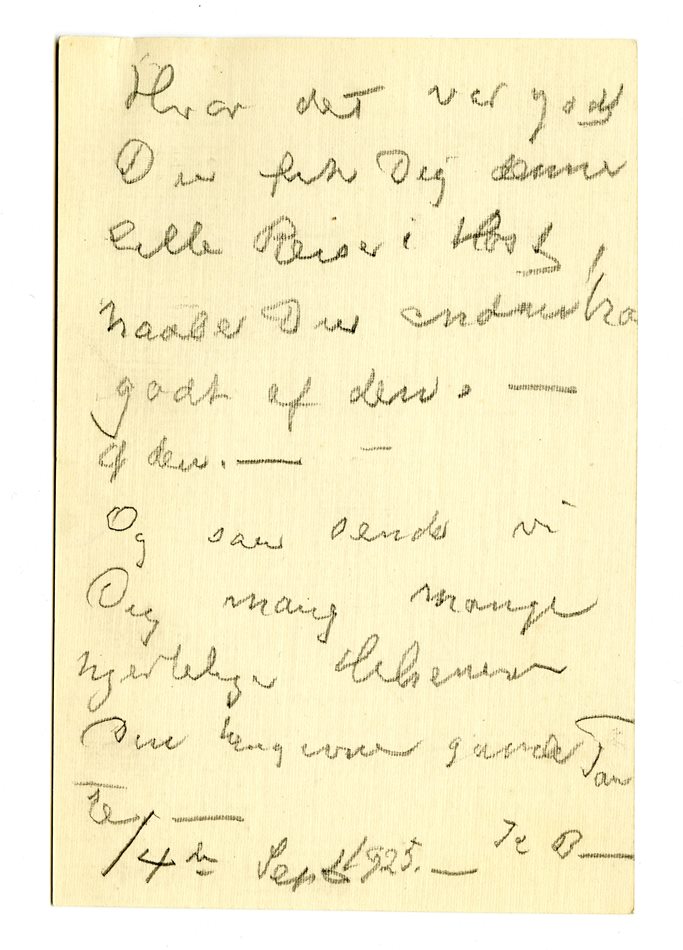 Hvor det var godt
Du fik Dig denne
lille Reise i Høst,
haaber Du endnu har
godt af den. —
af den. — —
Og saa sender vi
Dig mang mange
hjertelige Hilsener
Din hengivne gamle Tan
te. —
/4de Sept 1925. — B —